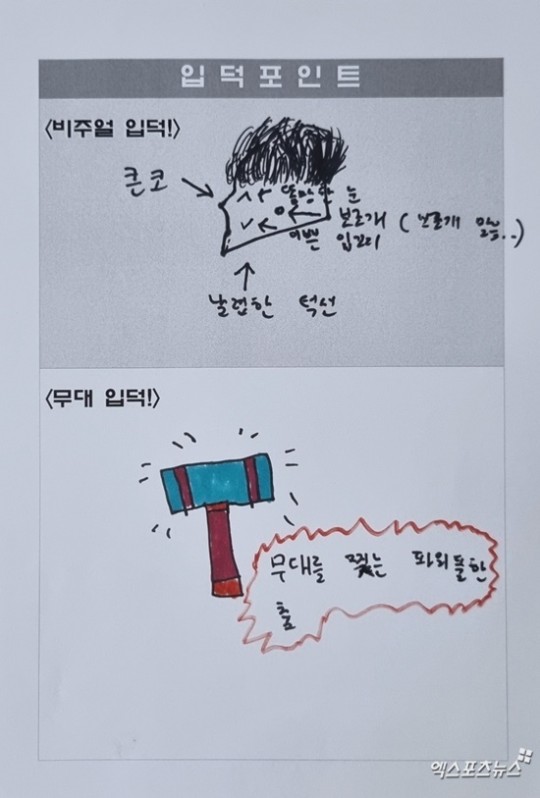 입덕포인트
<비주얼 입덕!>
큰코
똘망한 눈
보조개 (보조개 맞음..)
예쁜 입꼬리
날렵한 턱선
<무대 입덕!>
무대를 찢는 파워풀한
춤
엑스포츠뉴스